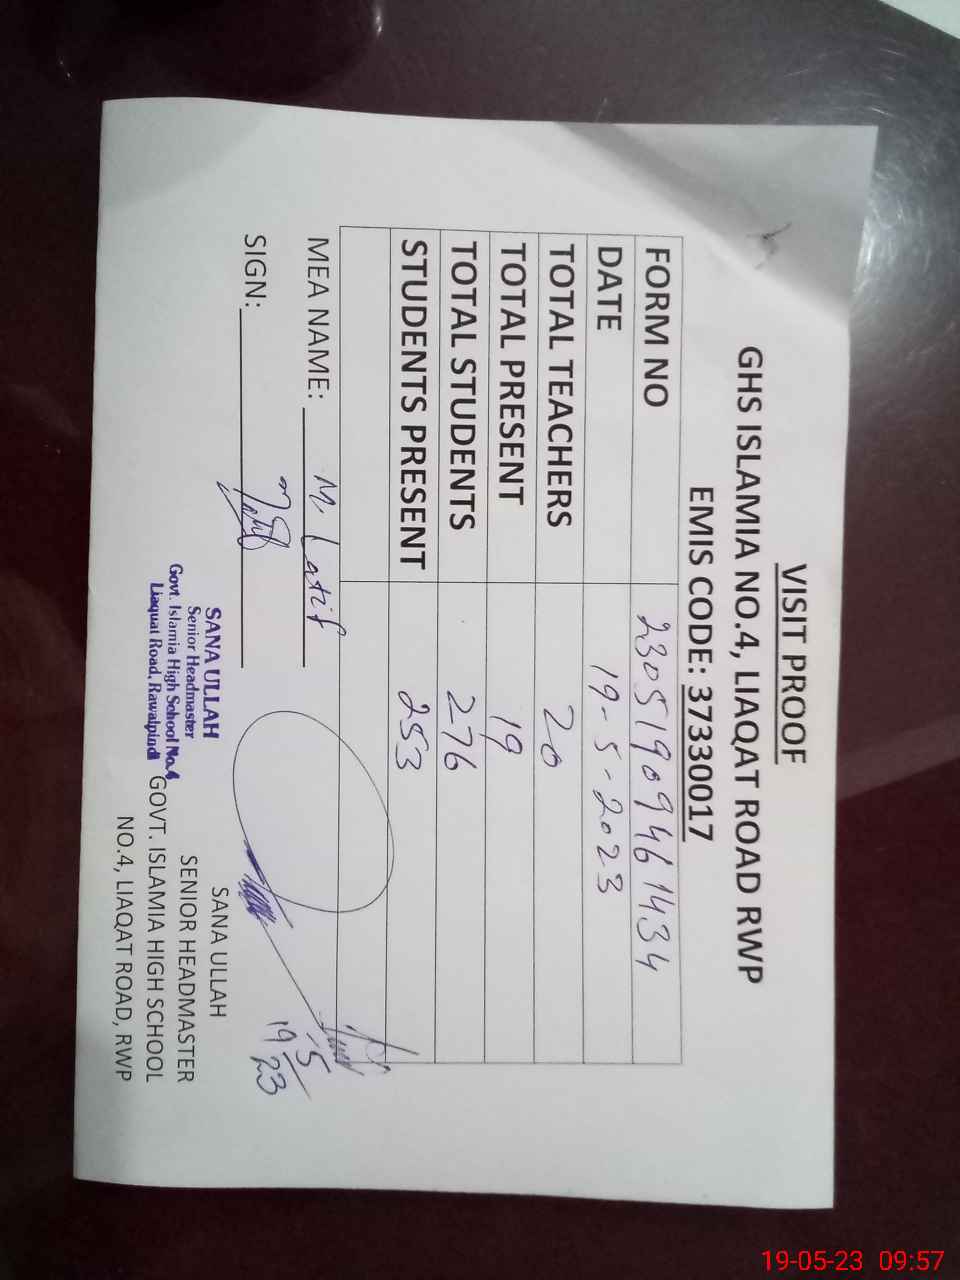 VISIT PROOF
GHS ISLAMIA NO.4, LIAQAT ROAD RWP
EMIS CODE: 37330017
FORM NO 230519094614 34
DATE 19-5-2023
TOTAL TEACHERS 20
TOTAL PRESENT 19
TOTAL STUDENTS 276
STUDENTS PRESENT 253
MEA NAME: M. Latif
SIGN:
19-5/23
SANA ULLAH
Senior Headmaster
Govt. Islamia High School No.4
Liaquat Road, Rawalpindi
SANA ULLAH
SENIOR HEADMASTER
GOVT. ISLAMIA HIGH SCHOOL
NO.4, LIAQAT ROAD, RWP
19-05-23 09:57